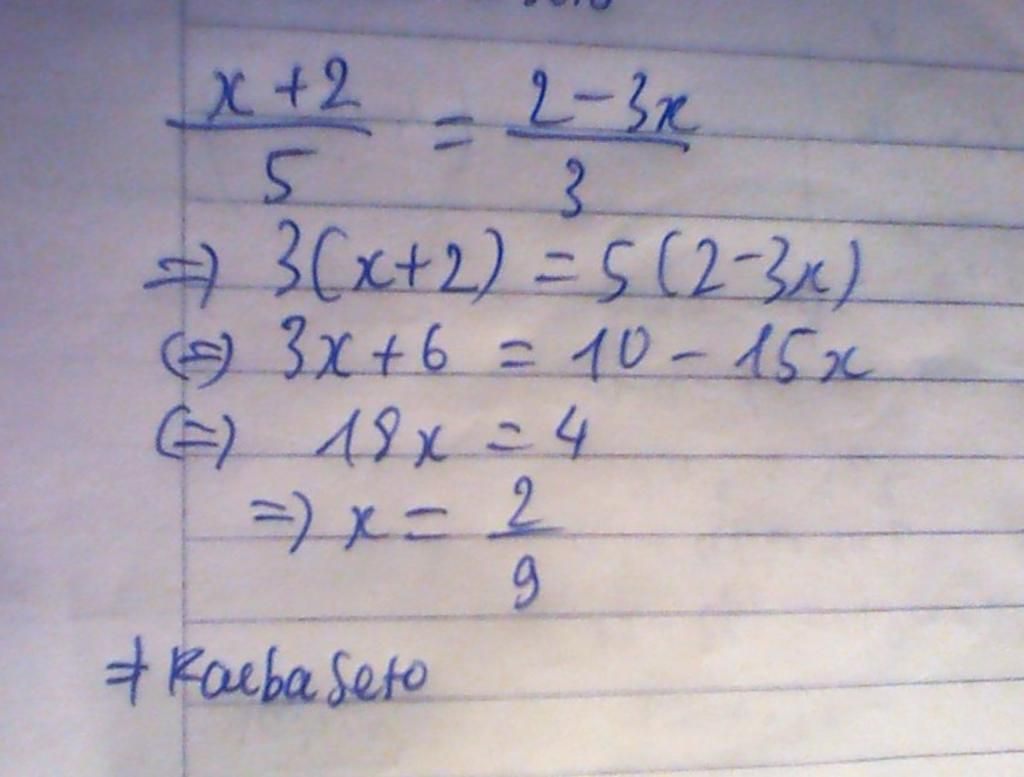 x+2/5 = 2-3x/3
=> 3(x+2) = 5(2-3x)
<=> 3x+6 = 10-15x
<=> 18x = 4
=> x = 2/9
=> KaibaSeto